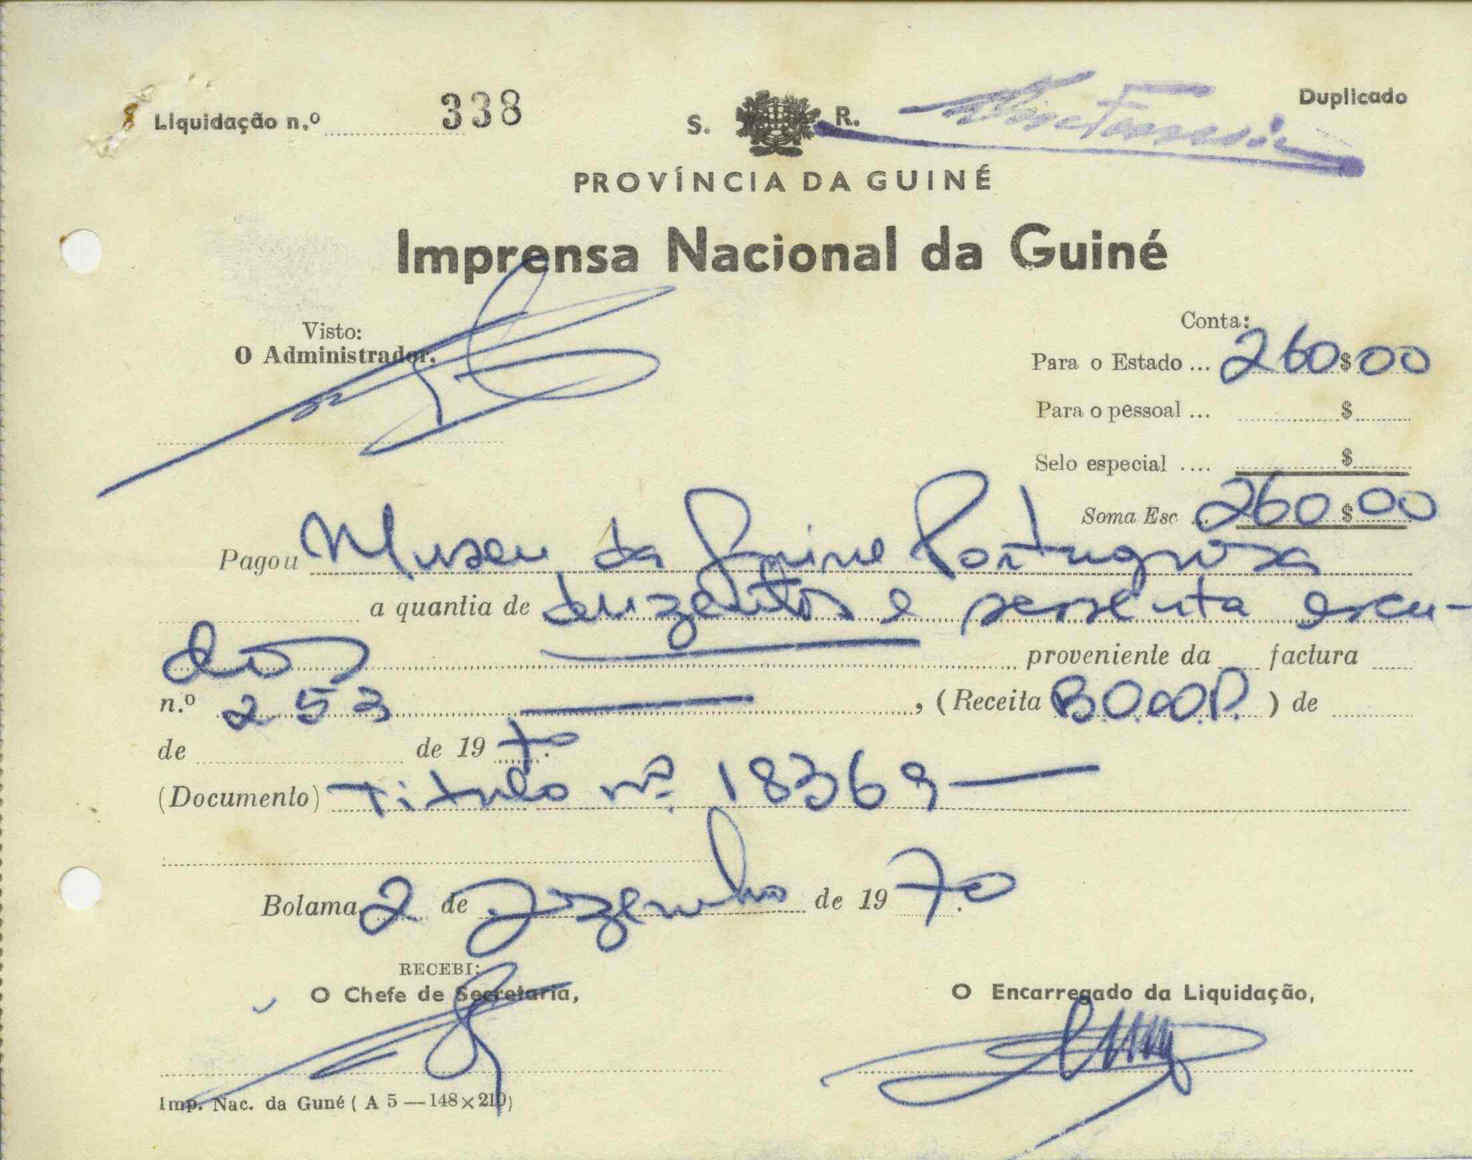 Liquidação n.º 338
S. R.
Duplicado
PROVÍNCIA DA GUINÉ
Imprensa Nacional da Guiné
Visto:
O Administrador.
Conta:
Para o Estado ... 260$00
Para o pessoal ... $
Selo especial .... $
Soma Esc .. 260$00
Pagou Museu da Guiné Portuguesa
a quantia de duzentos e sessenta escu-
dos proveniente da factura
n.º 253, (Receita B.O.00P.) de
de de 1970.
(Documento) Titulo nº. 18369
Bolama 2 de Dezembro de 1970.
RECEBI:
O Chefe de Secretaria,
O Encarregado da Liquidação,
Imp. Nac. da Guné ( A 5—148×210)